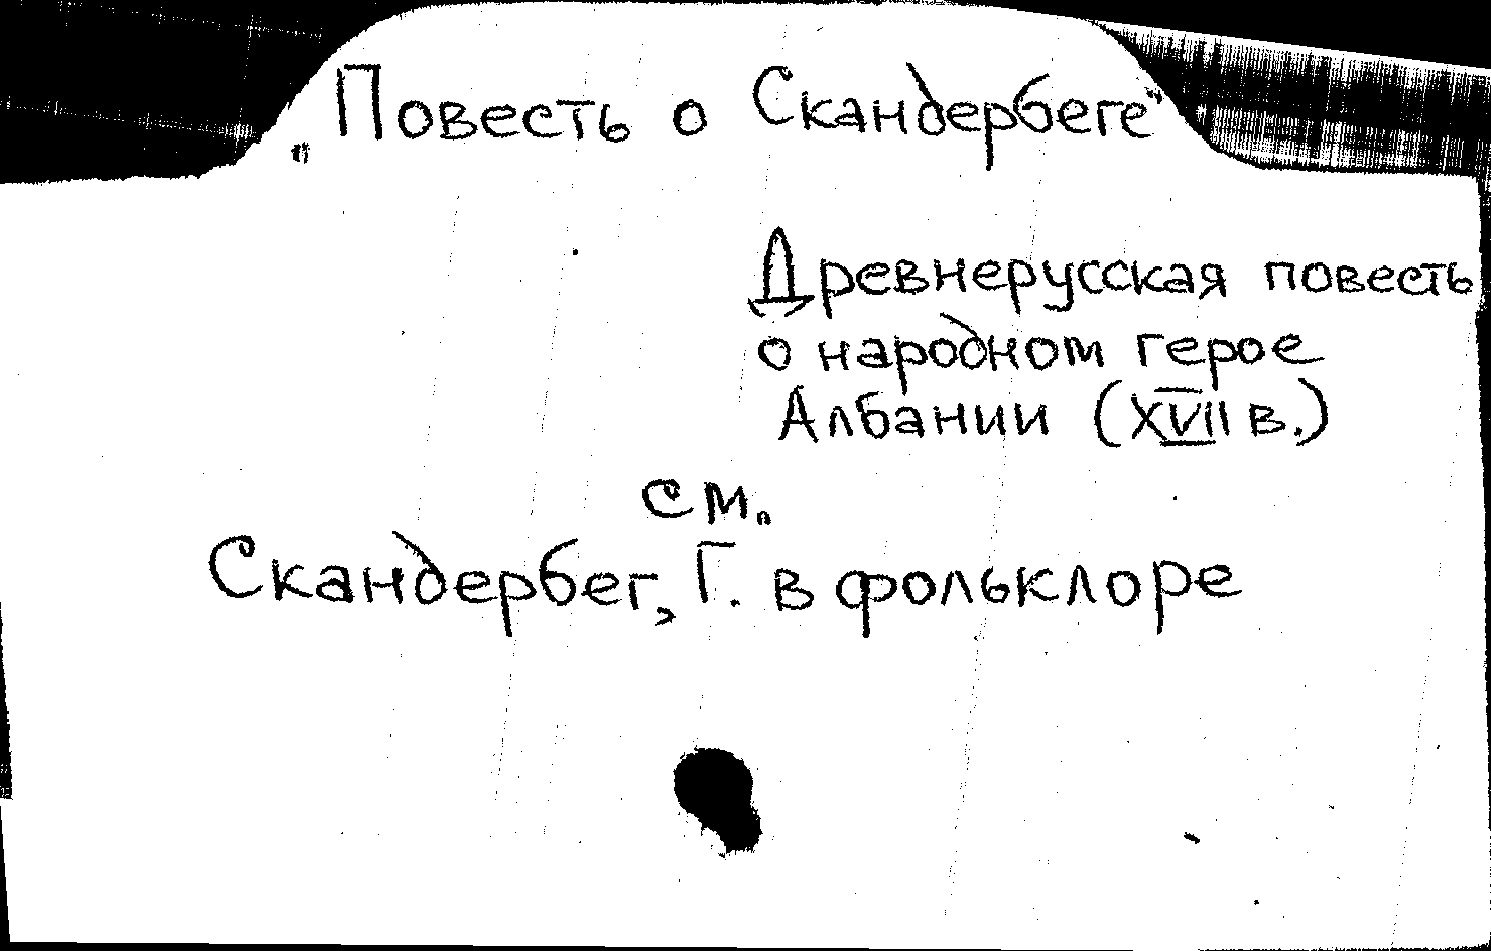 „Повесть о Скандербеге"
Древнерусская повесть
о народном герое
Албании (XVII в.)
см.
Скандербег, Г. в фольклоре